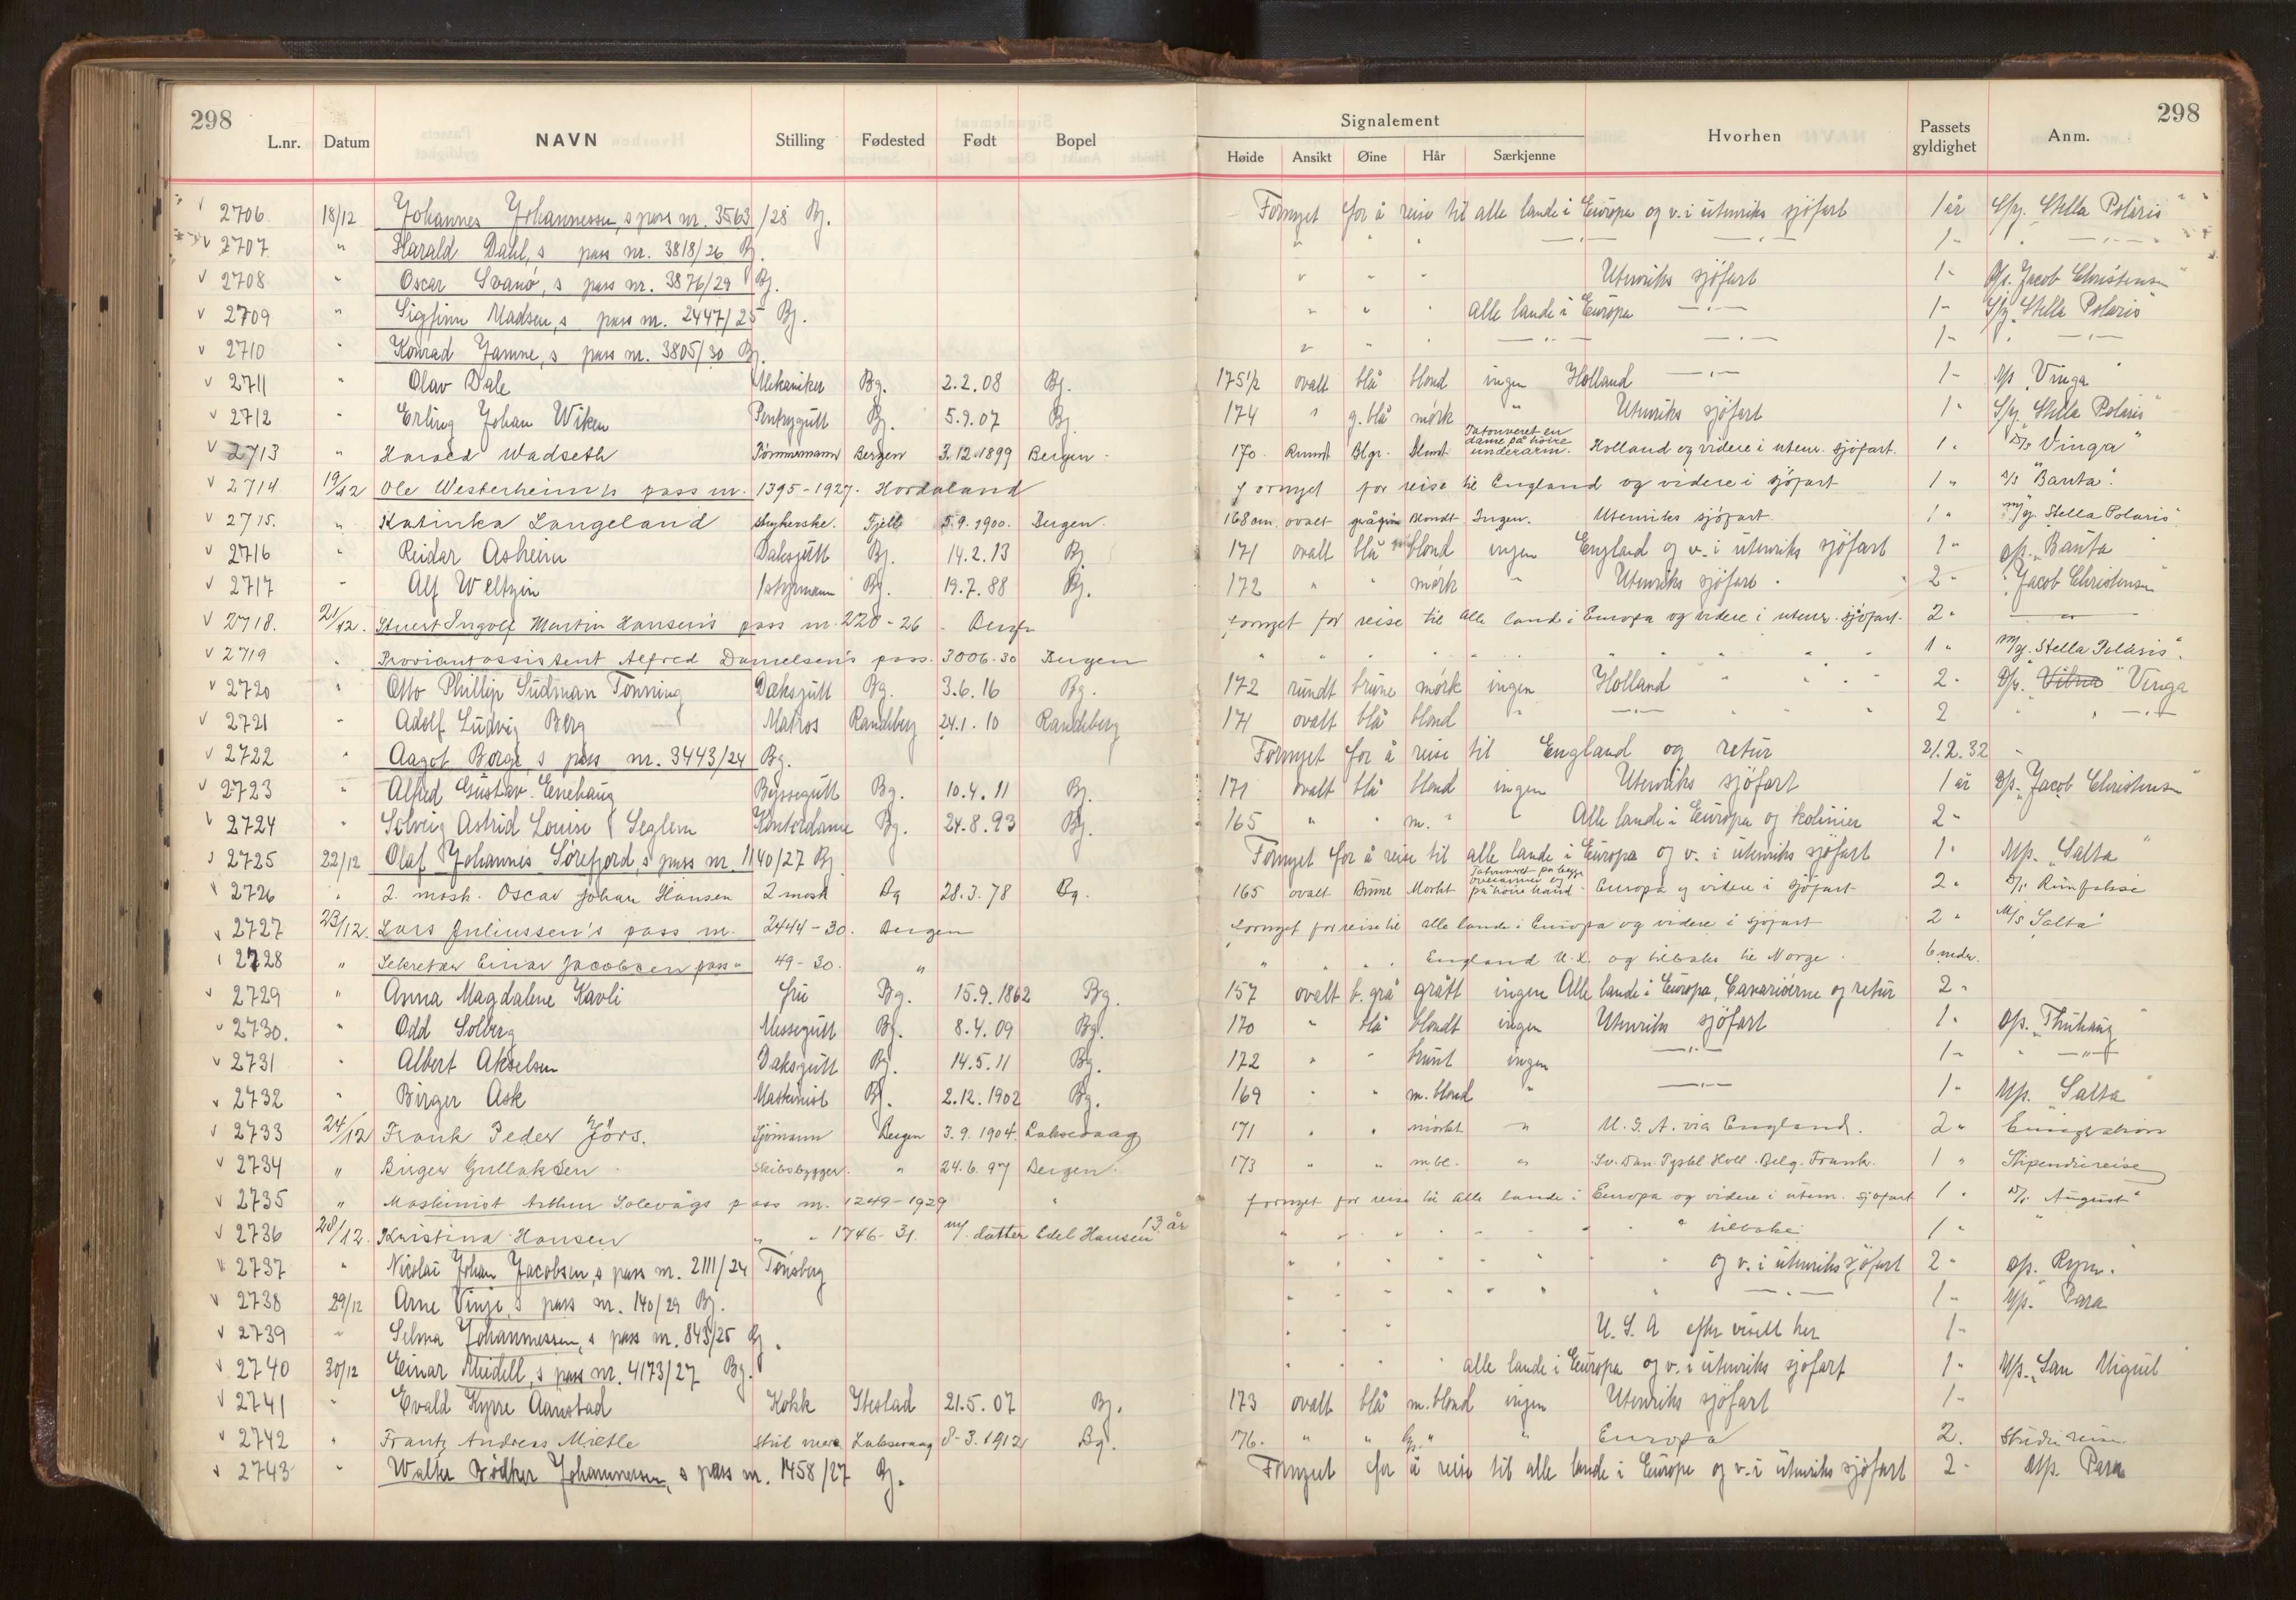 298
298
L.nr. Datum NAVN Stilling Fødested Født Bopel
Signalement
Høide Ansikt Øine Hår Særkjenne Hvorhen Passets gyldighet Anm.
2706 18/12 Johannes Johannessen,s pass nr. 3563/28 Bg. Fornyet for å reise til alle lande i Europa og v. i utenriks sjöfart 1 år S/y. "Stella Polaris"
2707 " Harald Dahl,s pass nr. 3818/26 Bg. " " " —"— —"— 1 " " —"—
2708 " Oscar Svanö,s pass nr. 3876/29 Bg. " " " Utenriks sjöfart 1 " D/s. Jacob Christensen"
2709 " Sigfinn Madsen,s pass nr. 2447/25 Bg. " " " alle lande i Europa —"— 1 " S/y "Stella Polaris"
2710 " Konrad Jamne,s pass nr. 3805/30 Bg. " " " —"— —"— 1 " " —"—
2711 " Olav Dale Mekaniker Bg. 2.2.08 Bg. 175 1/2 ovalt blå blond ingen Holland —"— 1 " "Vinga"
2712 " Erling Johan Wiken Pentrygutt Bg. 5.9.07 Bg. 174 " g.blå mörk " Utenriks sjöfart 1 " S/y. "Stella Polaris"
2713 " Harald Wadseth Tömmermann Bergen 3.12.1899 Bergen. 170. Rundt Blgr. Blondt Tatouveret en dame på höire underarm. Holland og videre i utenr. sjöfart. 1 " D/s "Vinga"
2714 19/12 Ole Westerheim's pass nr. 1395-1927. Hordaland Fornyet for reise til England og videre i sjöfart 1 " D/s "Banta".
2715. " Katinka Langeland Strykerske. Fjell 5.9.1900. Bergen. 168 cm. ovalt Blondt Ingen. Utenriks sjöfart. 1 " M/y. Stella Polaris"
2716 " Reidar Asheim Daksgutt Bg. 14.2.13 Bg. 171 ovalt blå blond ingen England og v. i utenriks sjöfart 1 " D/s. "Banta"
2717 " Alf Weltzin 1 styrmann Bg. 19.7.88 Bg. 172 " " mörk " Utenriks sjöfart. 2 " "Jacob Christensen"
2718. 21/12. Stuert Ingolf Martin Hansen's pass nr. 220-26. Bergen Fornyet for reise til alle land i Europa og videre i utenr. sjöfart. 2 " —"—
2719 " Proviantassistent Alfred Danielsen's pass. 3006-30 Bergen " " " " " " " " 1 " M/y. Stella Polaris".
2720 " Otto Phillip Sudman Tönning Daksgutt Bg. 3.6.16 Bg. 172 rundt brune mörk ingen Holland " " " 2 " D/s. "Vilna" Vinga
2721 " Adolf Ludvig Berg Matros Randeberg 24.1.10 Randeberg 171 ovalt blå blond " —"— " " " 2 " " —"—
2722 " Aagot Borge,s pass nr. 3443/24 Bg. Fornyet for å reise til England og retur 21.2.32
2723 " Alfred Gustav Enehaug Byssegutt Bg. 10.4.11 Bg. 171 ovalt blå blond ingen Utenriks sjöfart 1 år D/s. "Jacob Christensen"
2724 " Solveig Astrid Louise Seglem Kontordame Bg. 24.8.93 Bg. 165 " " m. " " Alle lande i Europa og kolonier 2 "
2725 22/12 Olaf Johannes Sörefjord,s pass nr. 1140/27 Bg Fornyet for å reise til alle lande i Europa og v. i utenriks sjöfart 1 " M/s. "Salta"
2726 " 2. mask. Oscar Johan Hansen 2 mask Bg 28.3.78 Bg. 165 ovalt Brune Morkt Tatouveret på begge overarmer og på höire hånd. Europa og videre i sjöfart 2 "
2727 23/12. Lars Juliussen's pass nr. 2444-30. Bergen Fornyet for reise til alle lande i Europa og videre i sjöfart 2 " M/s "Salta"
2728 " Sekretær Einar Jacobsen pass " 49-30. " " " " " England U.K. og tilbake til Norge. 6 mdr.
2729 " Anna Magdalene Kavli fru Bg. 15.9.1862 Bg. 157 ovalt b.grå grått ingen Alle lande i Europa, Canariöerne og retur 2 "
2730. " Odd Solberg Messegutt Bg. 8.4.09 Bg. 170 " blå blondt ingen Utenriks sjöfart 1 " D/s.
2731 " Albert Akselsen Daksgutt Bg. 14.5.11 Bg. 172 " " brunt ingen —"— 1 " " —"—
2732 " Birger Ask Maskinist Bg. 2.12.1902 Bg. 169 " " m. blond " —"— 1 " M/s. "Salta"
2733 24/12 Frank Peder Jörs. Sjömann Bergen 3.9.1904. Laksevaag 171 " " mörkt " U.S.A. via England. 2 " Emigration
2734 " Birger Gullaksen. Skibsbygger. " 24.6.97 Bergen. 173 " " m.bl. " Sv. Dan. Tyskl Holl. Belg. Frankr. 1 " Stipendiereise
2735 " Maskinist Arthur Solevågs pass nr. 1249-1929 " fornyet for reise til alle lande i Europa og videre i utenr. sjöfart 1 " D/s. August"
2736 28/12. Kristina Hansen " " 1746-31. m/. datter Edel Hansen 13 år " " " " " " " tilbake 1 " "
2737 " Nicolai Johan Jacobsen,s pass nr. 2111/24 Tönsberg " " " " " " og v. i utenriks sjöfart 2 " D/s.
2738 29/12 Arne Vinje,s pass nr. 140/29 Bg. " " " " " " " —"— 1 " M/s. "Para
2739 " Selma Johannessen,s pass nr. 843/25 Bg. " " " U.S.A efter visitt her 1 "
2740 30/12 Einar Meidell,s pass nr. 4173/27 Bg. " " " " alle lande i Europa og v. i utenriks sjöfart 1 " M/s. "San Miguel"
2741 " Evald Kyrre Aanstad Kokk Ibestad 21.5.07 Bg. 173 ovalt blå m.blond ingen Utenriks sjöfart 1 "
2742 " Frantz Andreas Laksevaag 8-3.1912 Bg. 176. " " " " Europa 2. Studiereise
2743 " Walter Bödtker Johannessen,s pass nr. 1458/27 Bg. Fornyet for å reise til alle lande i Europa og v. i utenriks sjöfart 2 " M/s. Para